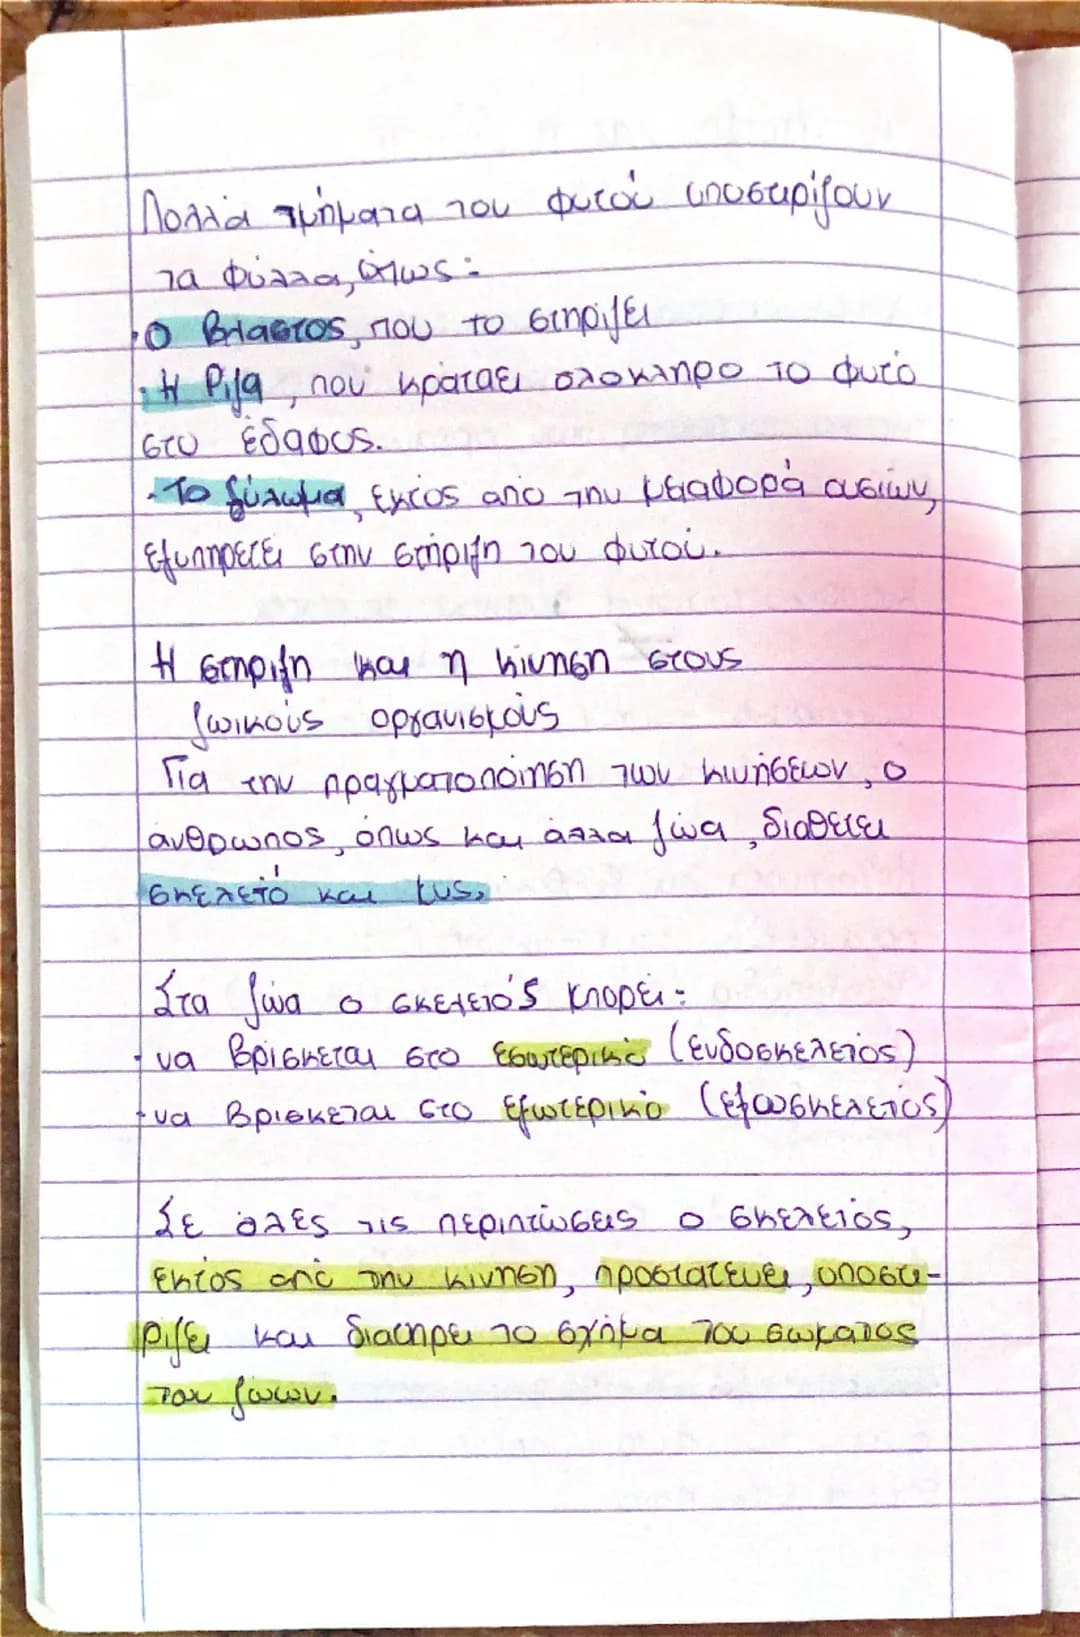 Πολλά τμήματα του φυτού υποστιρίζουν
τα φύλλα, όπως:
·Ο Βλαστος, που το στηρίζει
·Η Ρίζα, που κράταει ολοκληρο το φυτό
στο έδαφος.
·Το ξύλωμα, εκτός από την μεταφορά ουσιών,
εξυπηρετεί στην στήριξη του φυτού.
Η στηριξη και η κίνηση στους
ζωικούς οργανισμούς
Για την πραγματοποίηση των κινήσεων, ο
άνθρωπος, όπως και άλλα ζώα, διαθέτει
σκελετό και μυς.
Στα ζώα ο σκελετός μπορεί:
-να βρίσκεται στο εσωτερικό (ενδοσκελετός)
-να βρισκεται στο εξωτερικό (εξωσκελετός)
Σε όλες τις περιπτώσεις ο σκελετός,
εκτός από την κίνηση, προστατεύει, υποστι-
ρίζει και διατηρεί το σχήμα του σωματος
των ζώων.